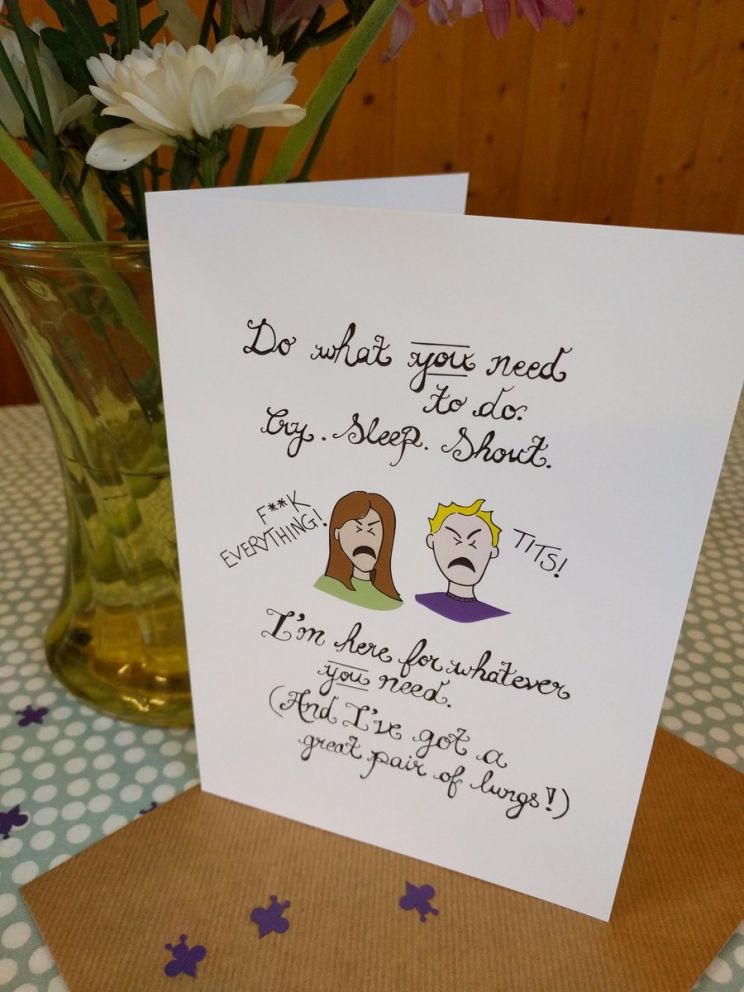 Do what you need
to do.
Cry. Sleep. Shout.
F**K
EVERYTHING!
TITS!
I'm here for whatever
you need.
(And I've got a
great pair of lungs!)